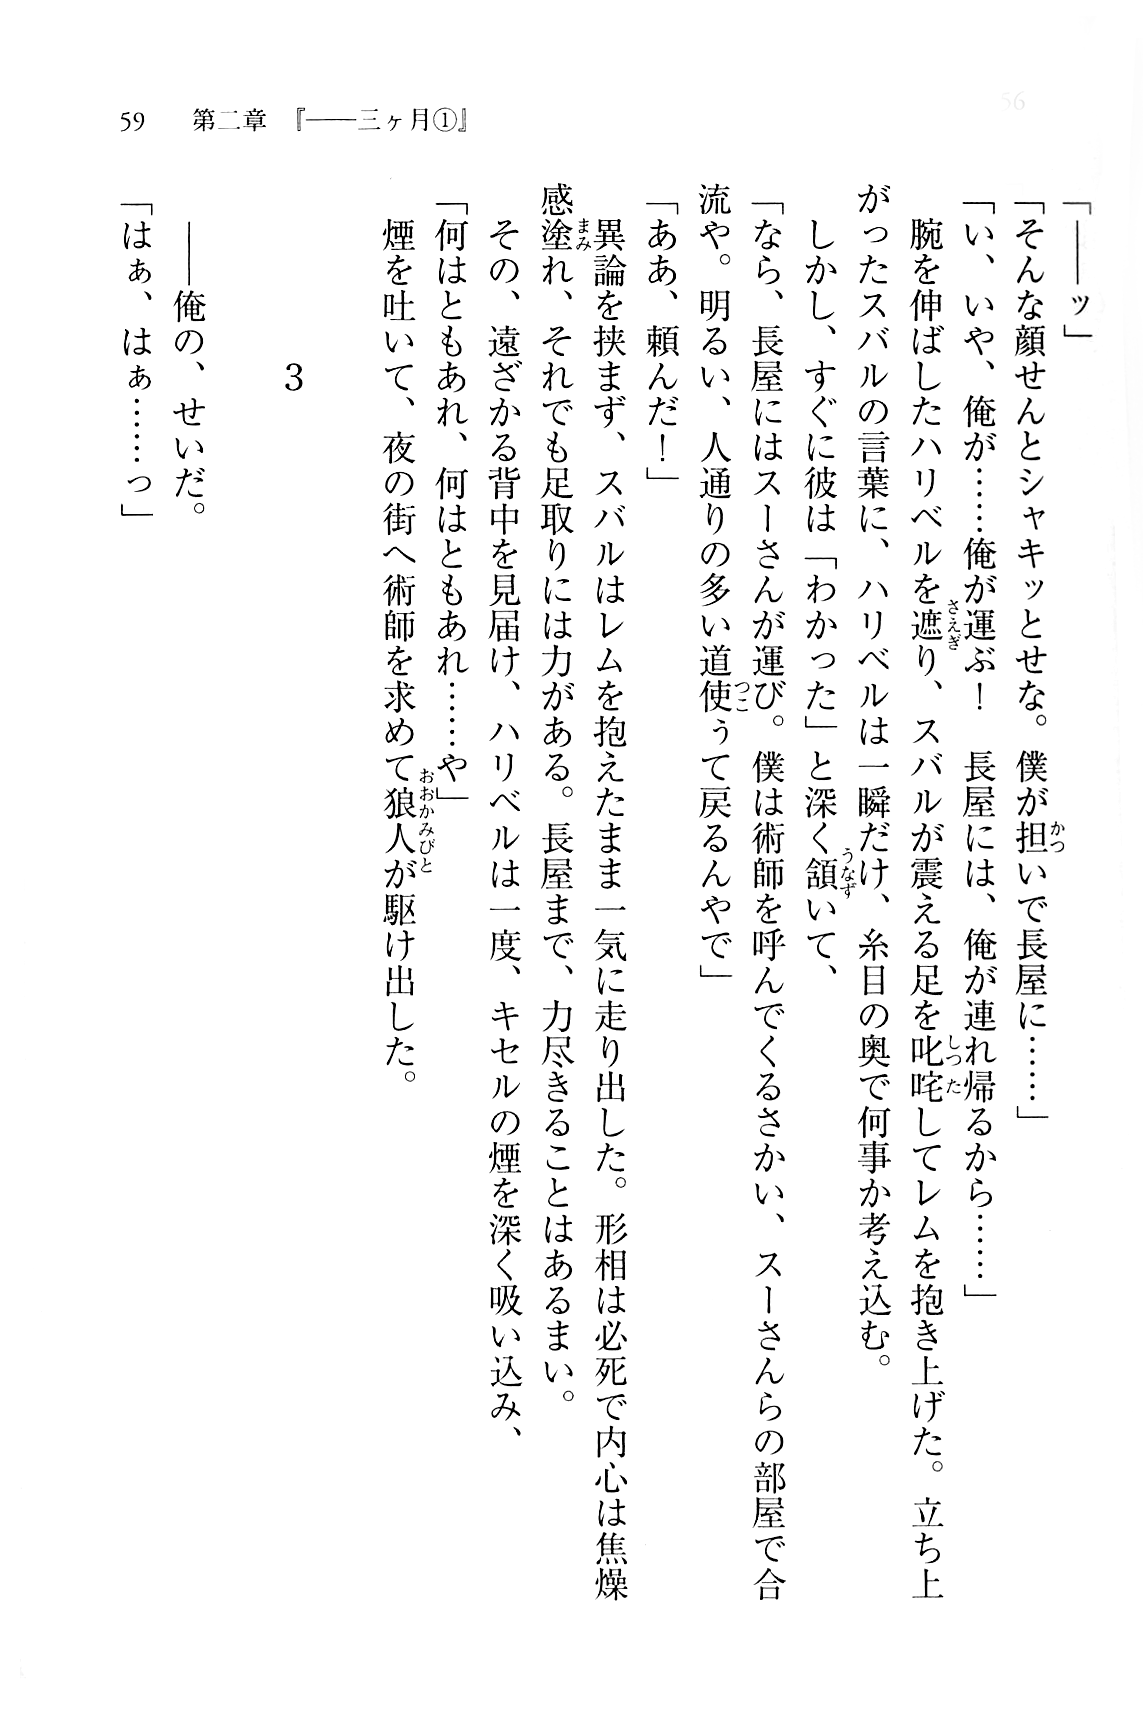 59　第二章　『――三ヶ月①』
「――ッ」
「そんな顔せんとシャキッとせな。僕が担いで長屋に……」
「い、いや、俺が……俺が運ぶ！　長屋には、俺が連れ帰るから……」
　腕を伸ばしたハリベルを遮り、スバルが震える足を叱咤してレムを抱き上げた。立ち上
がったスバルの言葉に、ハリベルは一瞬だけ、糸目の奥で何事か考え込む。
　しかし、すぐに彼は「わかった」と深く頷いて、
「なら、長屋にはスーさんが運び。僕は術師を呼んでくるさかい、スーさんらの部屋で合
流や。明るい、人通りの多い道使ぅて戻るんやで」
「ああ、頼んだ！」
　異論を挟まず、スバルはレムを抱えたまま一気に走り出した。形相は必死で内心は焦燥
感塗れ、それでも足取りには力がある。長屋まで、力尽きることはあるまい。
　その、遠ざかる背中を見届け、ハリベルは一度、キセルの煙を深く吸い込み、
「何はともあれ、何はともあれ……や」
　煙を吐いて、夜の街へ術師を求めて狼人が駆け出した。
3
　――俺の、せいだ。
「はぁ、はぁ……っ」